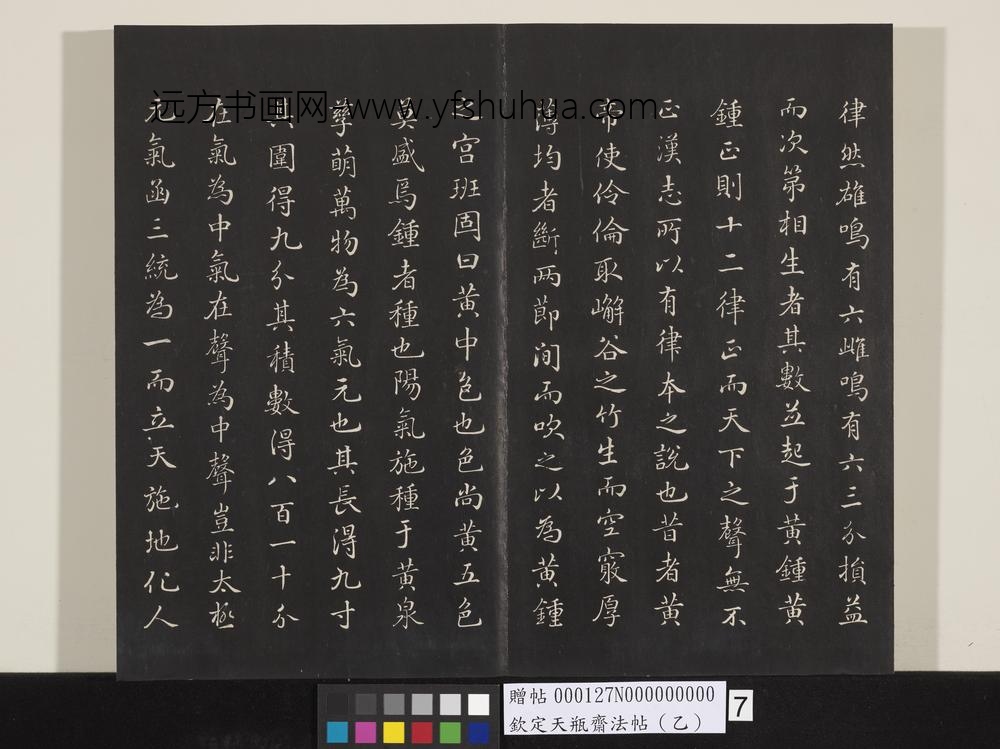 律然雄鳴有六雌鳴有六三分損益
而次第相生者其數並起于黃鍾黃
鍾正則十二律正而天下之聲無不
正漢志所以有律本之說也昔者黃
帝使伶倫取嶰谷之竹生而空竅厚
薄均者斷兩節間而吹之以為黃鍾
之宮班固曰黃中色也色尚黃五色
莫盛焉鍾者種也陽氣施種于黃泉
孳萌萬物為六氣元也其長得九寸
其圍得九分其積數得八百一十分
在氣為中氣在聲為中聲豈非太極
元氣函三統為一而立天施地化人
远方书画网 www.yfshuhua.com
贈帖 000127N000000000
欽定天瓶齋法帖(乙)
7